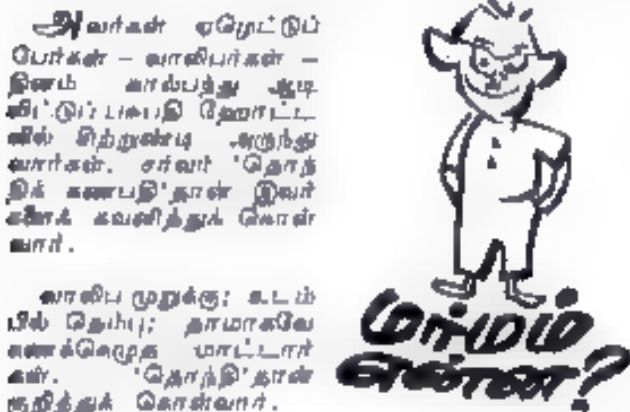 அவர்கள் ஏழெட்டுப்
பேர்கள் – வாலிபர்கள் –
தினம் கால்பந்து ஆடி
விட்டுப் பசுபதி ஹோட்ட
லில் சிற்றுண்டி அருந்து
வார்கள். சர்வர் 'தொந்
திக் கணபதி'தான் இவர்
களைக் கவனித்துக் கொள்
வார்.
வாலிப முறுக்கு; உடம்
பில் தெம்பு; தாமாகவே
கணக்கெழுத மாட்டார்
கள். 'தொந்தி'தான்
குறித்துக் கொள்வார்.
மர்மம்
என்ன?